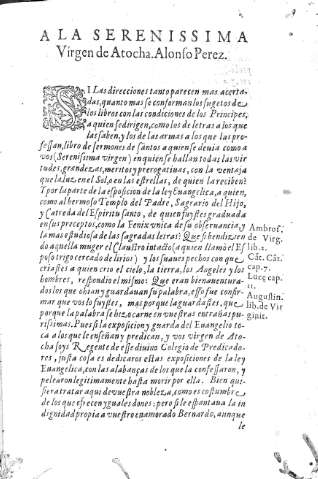 A LA SERENISSIMA
Virgen de Atocha. Alonso Perez.
SI Las direcciones tanto parecen mas acerta-
das, quanto mas se conforman los sugetos de
los libros con las condiciones de los Principes,
a quien se dirigen, como los de letras a los que
las saben, y los de las armas a los que las pro-
fessan, libro de sermones de santos a quien se deuia como a
vos (Serenissima virgen) en quien se hallan todas las vir-
tudes, grandezas, meritos y prerogatiuas, con la ventaja
que la luz en el Sol, o en las estrellas, de quien la reciben?
Y por la parte de la esposicion de la ley Euangelica, a quien,
como al hermoso Templo del Padre, Sagrario del Hijo,
y Catreda del Espiritu santo, de quien fuystes graduada
en sus preceptos, como la Fenix vnica de su obseruancia, y
la mas estudiosa de las sagradas letras: Que si bendizien-
do aquella muger el Claustro intacto (a quien llamò el Es-
poso trigo cercado de lirios) y los suaues pechos con que
criastes a quien crio el cielo, la tierra, los Angeles y los
hombres, respondio el mismo: Que eran bienauentura-
dos los que ohian y guardauan su palabra, esso fue confir-
mar que vos lo fuystes, mas porque la guardastes, que
porque la palabra se hizo carne en vuestras entrañas pu-
rissimas. Pues si la exposicion y guarda del Euangelio to-
ca a los que le enseñan y predican, y vos virgen de Atocha
soys Regente de esse diuino Colegio de Predicado-
res, justa cosa es dedicaros ellas exposiciones de la ley
Euangelica, con las alabanças de los que la confessaron, y
pelearon legitimamente hasta morir por ella. Bien qui-
siera tratar aqui de vuestra nobleza, como es costumbre
de los que ofrecen yguales dones: pero si le espantaua la in
dignidad propia a vuestro enamorado Bernardo, aunque
le
Ambros.
de Virg.
lib. 2.
Cāt. Cāt.
cap. 7.
Luce cap.
11.
Augustin.
lib. de Vir
ginit.